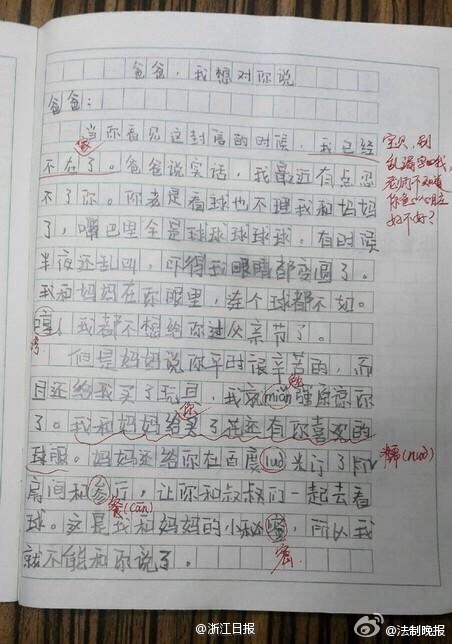 爸爸，我想对你说
爸爸：
当你看见这封信的时候，我已经
不在了。爸爸说实话，我最近有点忍
不了你。你老是看球也不理我和妈妈
了，嘴巴里全是球球球球球。有时候
半夜还乱叫，吓得我眼睛都变圆了。
我和妈妈在你眼里，连个球都不如。
我都不想给你过父亲节了。
但是妈妈说你平时很辛苦的，而
且还给我买了玩具，我就miǎn强原谅你
勉
了。我和妈妈给买了花还有你喜欢的
你
球服。妈妈还给你在百度nuò米订了KTV
房间和参厅，让你和叔叔们一起去看
餐(cān)
球。这是我和妈妈的小秘蜜，所以我
密
就不能和你说了。
宝贝，别
老师不知道
好不好？
糯(nuò)
@浙江日报
@法制晚报